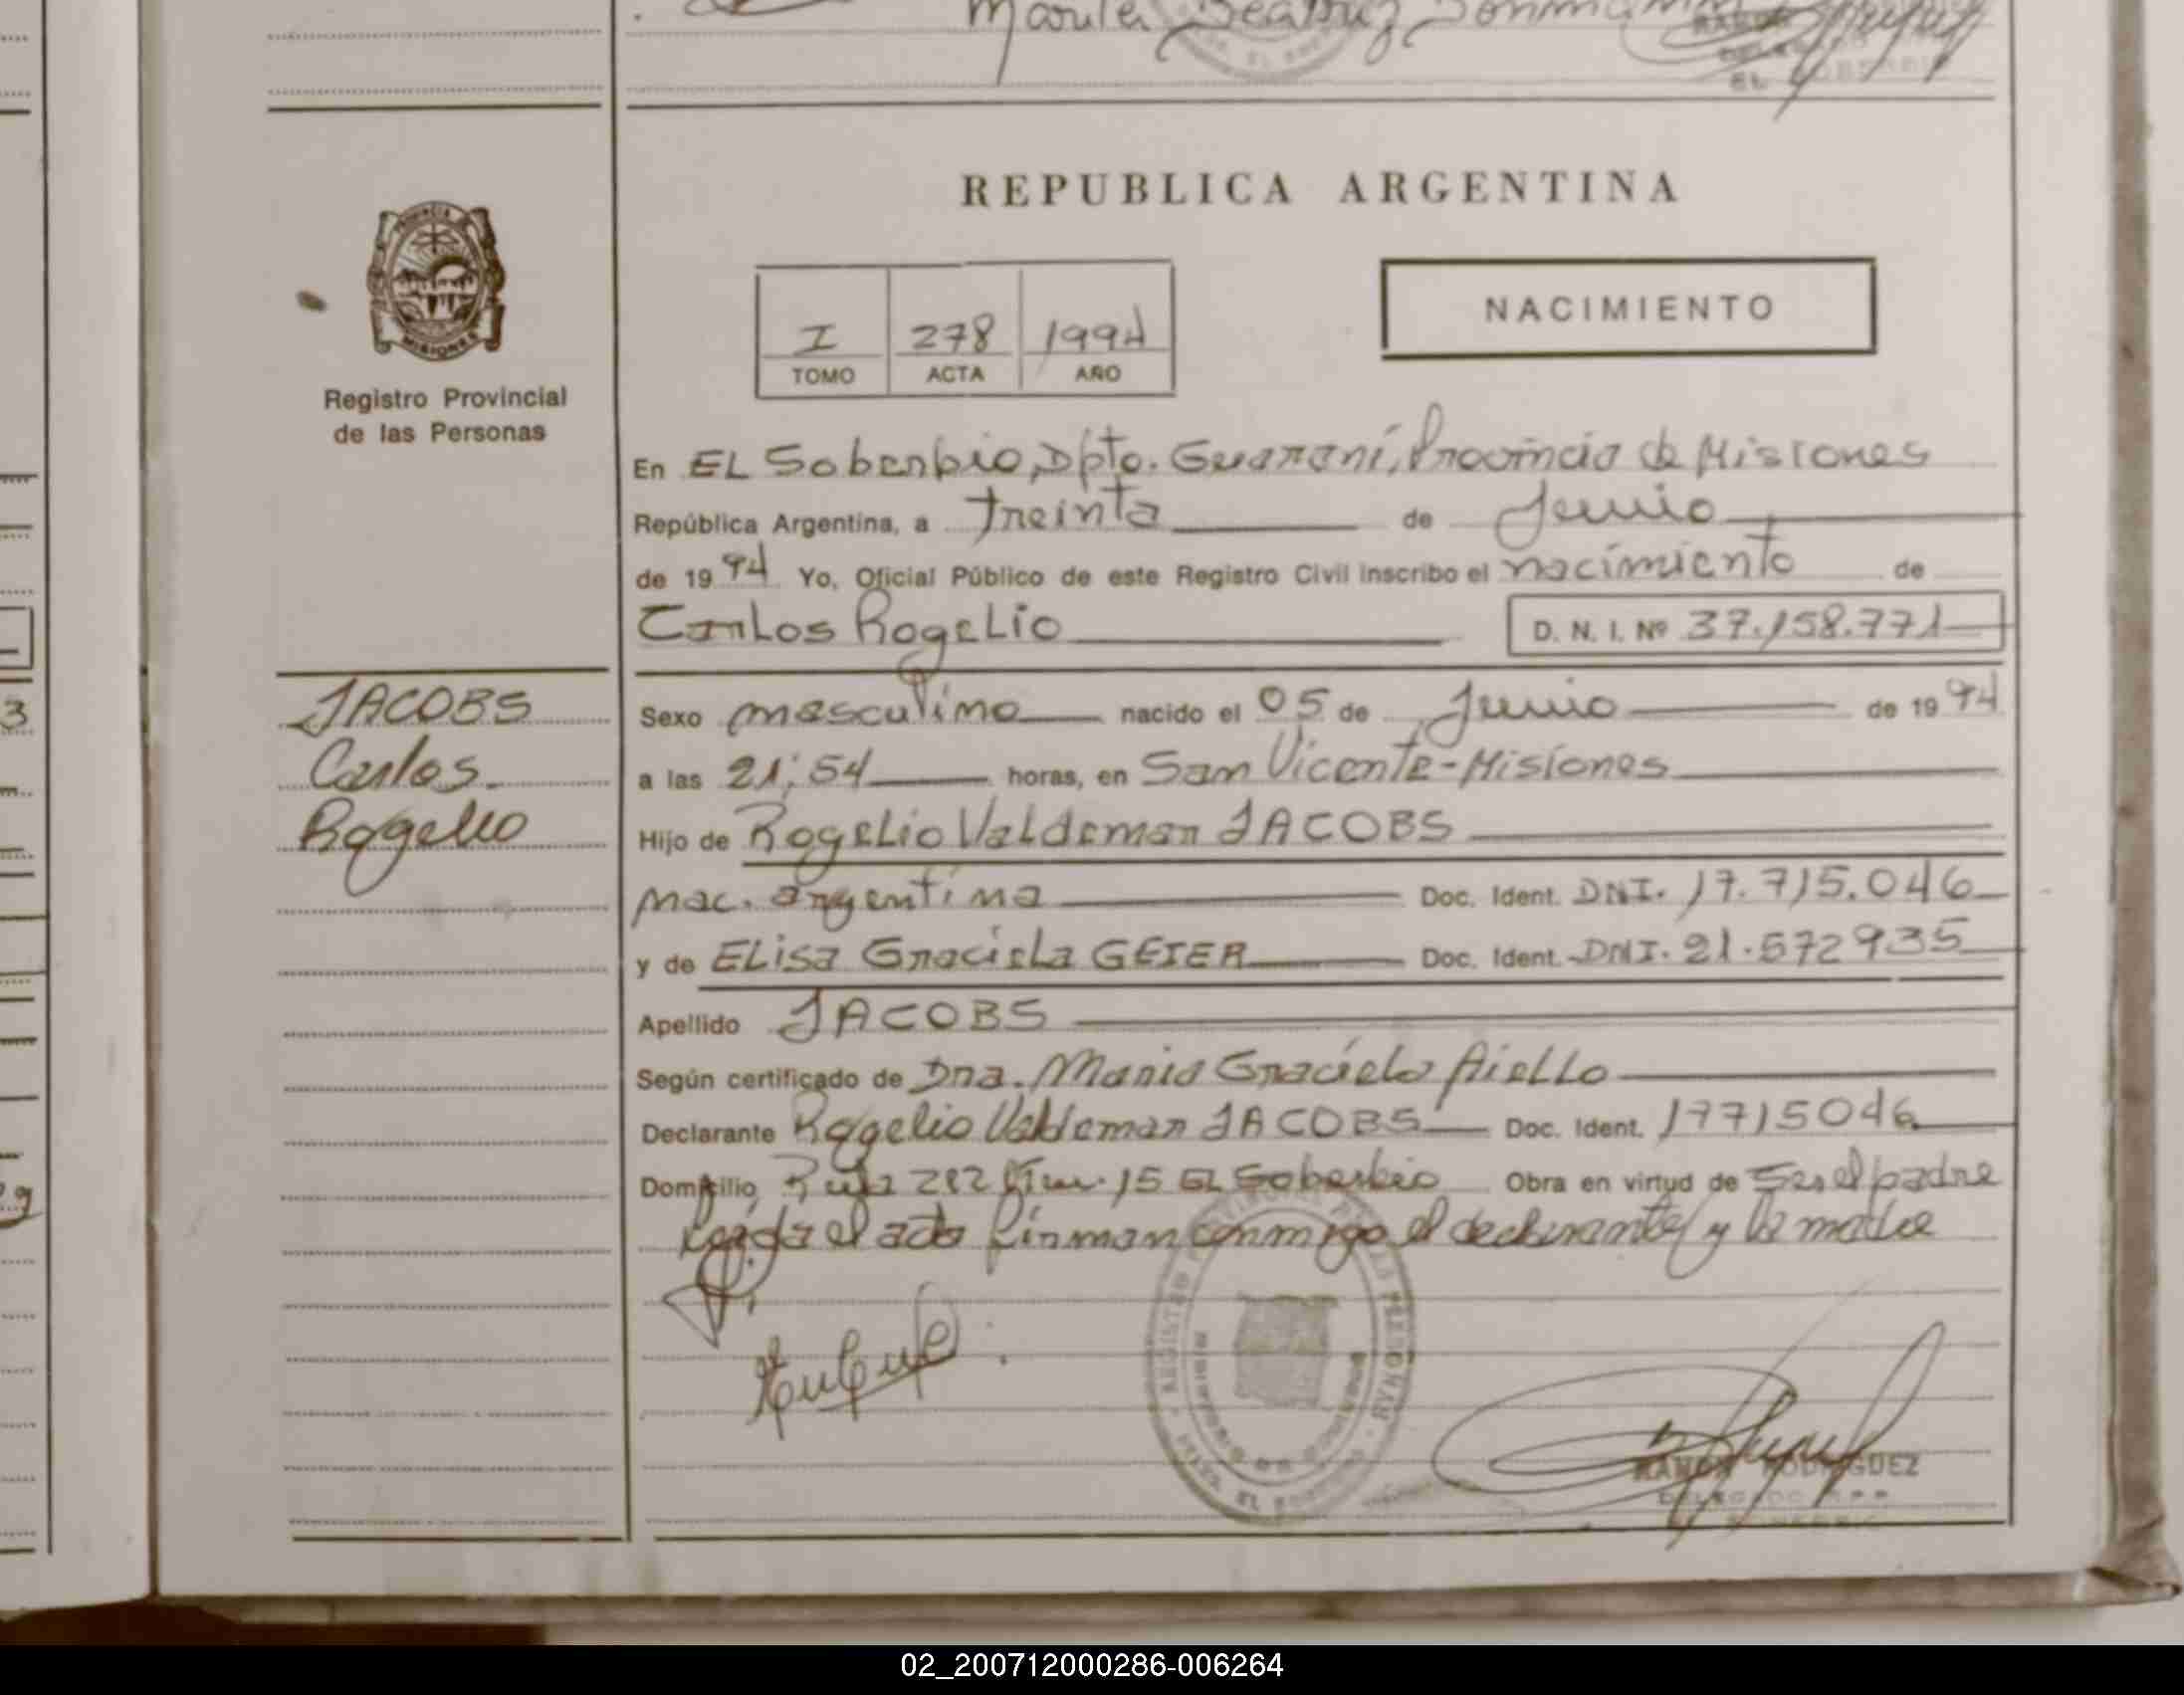 REPUBLICA ARGENTINA
MISIONES
Registro Provincial
de las Personas
NACIMIENTO
I 278 1994
TOMO ACTA AÑO
En EL Soberbio, Dpto. Guaraní, Provincia de Misiones
República Argentina, a treinta de Junio
de 1994 Yo, Oficial Público de este Registro Civil inscribo el nacimiento de
Carlos Rogelio D. N. I. Nº 37.158.771
JACOBS
Carlos
Rogelio
Sexo masculino nacido el 05 de Junio de 1994
a las 21:54 horas, en San Vicente-Misiones
Hijo de Rogelio Valdemar JACOBS
nac. argentina Doc. Ident. DNI. 17.715.046
y de ELisa Graciela GEIER Doc. Ident. DNI. 21.572935
Apellido JACOBS
Según certificado de Dra. Maria Graciela Aiello
Declarante Rogelio Valdemar JACOBS Doc. Ident. 17715046
Domicilio Ruta 212 Km. 15 EL Soberbio Obra en virtud de Ser el padre
Leída el acta firman conmigo el declarante y la madre
RAMON RODRIGUEZ
DELEGADO R.P.P.
02_200712000286-006264